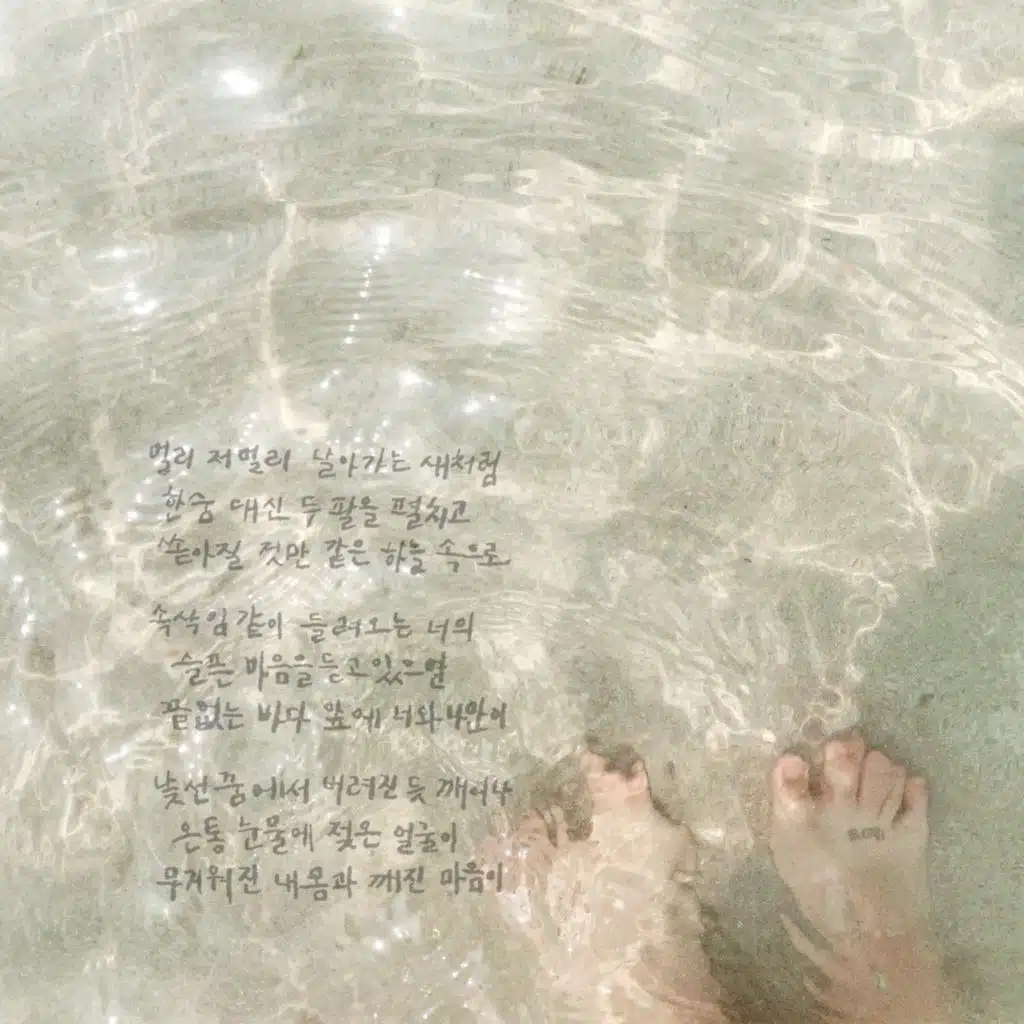 멀리 저멀리 날아가는 새처럼
한숨 대신 두 팔을 펼치고
쏟아질 것만 같은 하늘 속으로
속삭임 같이 들려오는 너의
슬픈 마음을 듣고 있으면
끝없는 바다 앞에 너와 나만이
낯선 꿈에서 버려진 듯 깨어나
온통 눈물에 젖은 얼굴이
무거워진 내 몸과 깨진 마음이